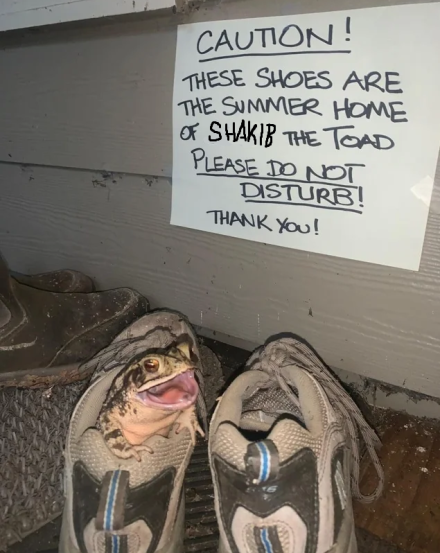 CAUTION!
THESE SHOES ARE
THE SUMMER HOME
OF SHAKIB THE TOAD
PLEASE DO NOT
DISTURB!
THANK YOU!